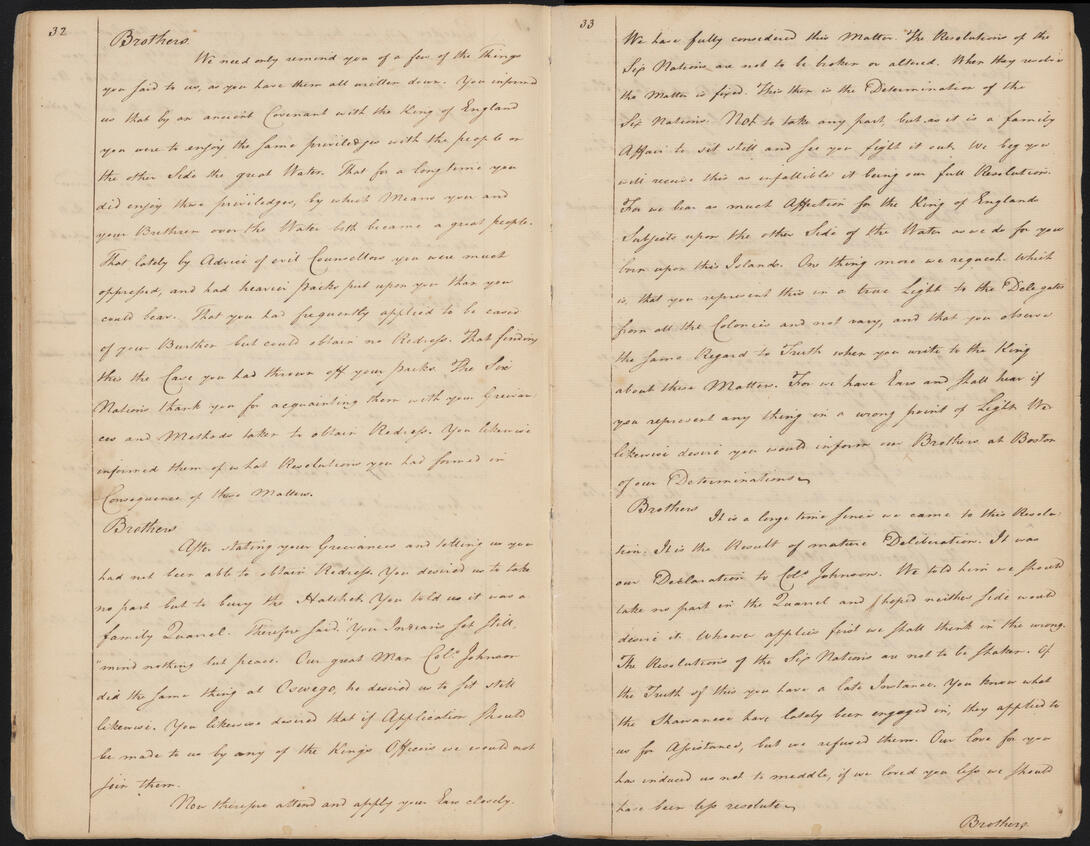 32
Brothers.
We need only remind you of a few of the Things
you said to us, as you have them all written down. You inform'd
us that by an ancient Covenant with the King of England
you were to enjoy the same priviledges with the people on
the other Side the great Water. That for a long time you
did enjoy these priviledges, by which Means you and
your Brethren over the Water both became a great people.
That lately by Advice of evil Counsellors you were much
oppressed, and had heavier packs put upon you than you
could bear. That you had frequently applied to be eased
of your Burthen but could obtain no Redress. That finding
this the Case you had thrown off your packs. The Six
Nations thank you for acquainting them with your Grievan-
ces and Methods taken to obtain Redress. You likewise
informed them of what Resolutions you had formed in
Consequence of these Matters.
Brothers
After stating your Grievances and telling us you
had not been able to obtain Redress. You desired us to take
no part but to bury the Hatchet. You told us it was a
family Quarrel. Therefore said. "You Indians set still,
"mind nothing but peace. Our great Man Col.º Johnson
did the same thing at Oswego, he desired us to set still
likewise. You likewise desired that if Application should
be made to us by any of the Kings Officers we would not
join them.
Now therefore attend and apply your Ears closely.
33
We have fully considered this Matter. The Resolutions of the
Six Nations are not to be broken or altered. When they resolve
the Matter is fixed. This then is the Determination of the
Six Nations. Not to take any part, but as it is a family
Affair to sit still and see you fight it out. We beg you
will receive this as infallible it being our full Resolution.
For we bear as much Affection for the King of Englands
Subjects upon the other Side of the Water as we do for you
born upon this Island. One thing more we request. Which
is, that you represent this in a true Light to the Delegates
from all the Colonies and not vary, and that you observe
the same Regard to Truth when you write to the King
about these Matters. For we have Ears and shall hear if
you represent any thing in a wrong point of Light. We
likewise desire you would inform our Brothers at Boston
of our Determinations
Brothers It is a long time since we came to this Resolu-
tion. It is the Result of mature Deliberation. It was
our Declaration to Col.º Johnson. We told him we should
take no part in the Quarrel and hoped neither side would
desire it. Whoever applies first we shall think in the wrong.
The Resolutions of the Six Nations are not to be shaken. Of
the Truth of this you have a late Instance. You know what
the Shawanese have lately been engaged in, they applied to
us for Assistance, but we refused them. Our love for you
has induced us not to meddle, if we loved you less we should
have been less resolute
Brothers